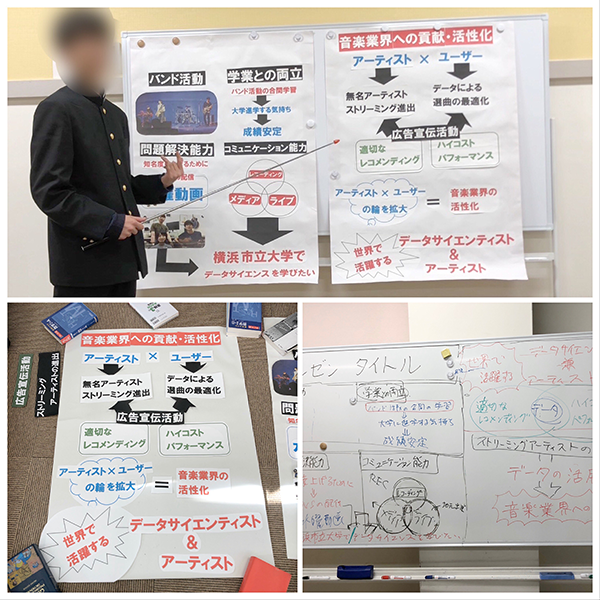 バンド活動
学業との両立
バンド活動の合間学習
大学進学する気持ち
成績安定
問題解決能力
コミュニケーション能力
知名度
ために
配信
動画
レコーディング
メディア
ライブ
横浜市立大学で
データサイエンスを学びたい
音楽業界への貢献・活性化
アーティスト × ユーザー
無名アーティスト
ストリーミング進出
データによる
選曲の最適化
広告宣伝活動
適切な
レコメンディング
ハイコスト
パフォーマンス
アーティスト×ユーザー
の輪を拡大
=
音楽業界の
活性化
世界で
活躍する
データサイエンティスト
&
アーティスト
広告宣伝活動
ストリーミング
アーティストの進出
音楽業界への貢献・活性化
アーティスト × ユーザー
無名アーティスト
ストリーミング進出
データによる
選曲の最適化
広告宣伝活動
適切な
レコメンディング
ハイコスト
パフォーマンス
アーティスト×ユーザー
の輪を拡大
=
音楽業界の
活性化
世界で
活躍する
データサイエンティスト
&
アーティスト
ゼン タイトル
学業との両立
成績安定
コミュニケーション能力
REC
世界で
活躍する
データサイエン
アーティスト
適切な
レコメンディング
データ
ハイコ
パフォ
ストリーミングアーティストの
データの活
音楽業界への